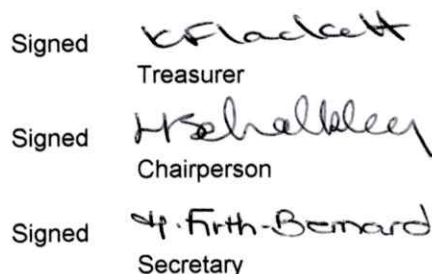 Signed K Flackett
Treasurer
Signed
Chairperson
Signed H. Firth-Bernard
Secretary